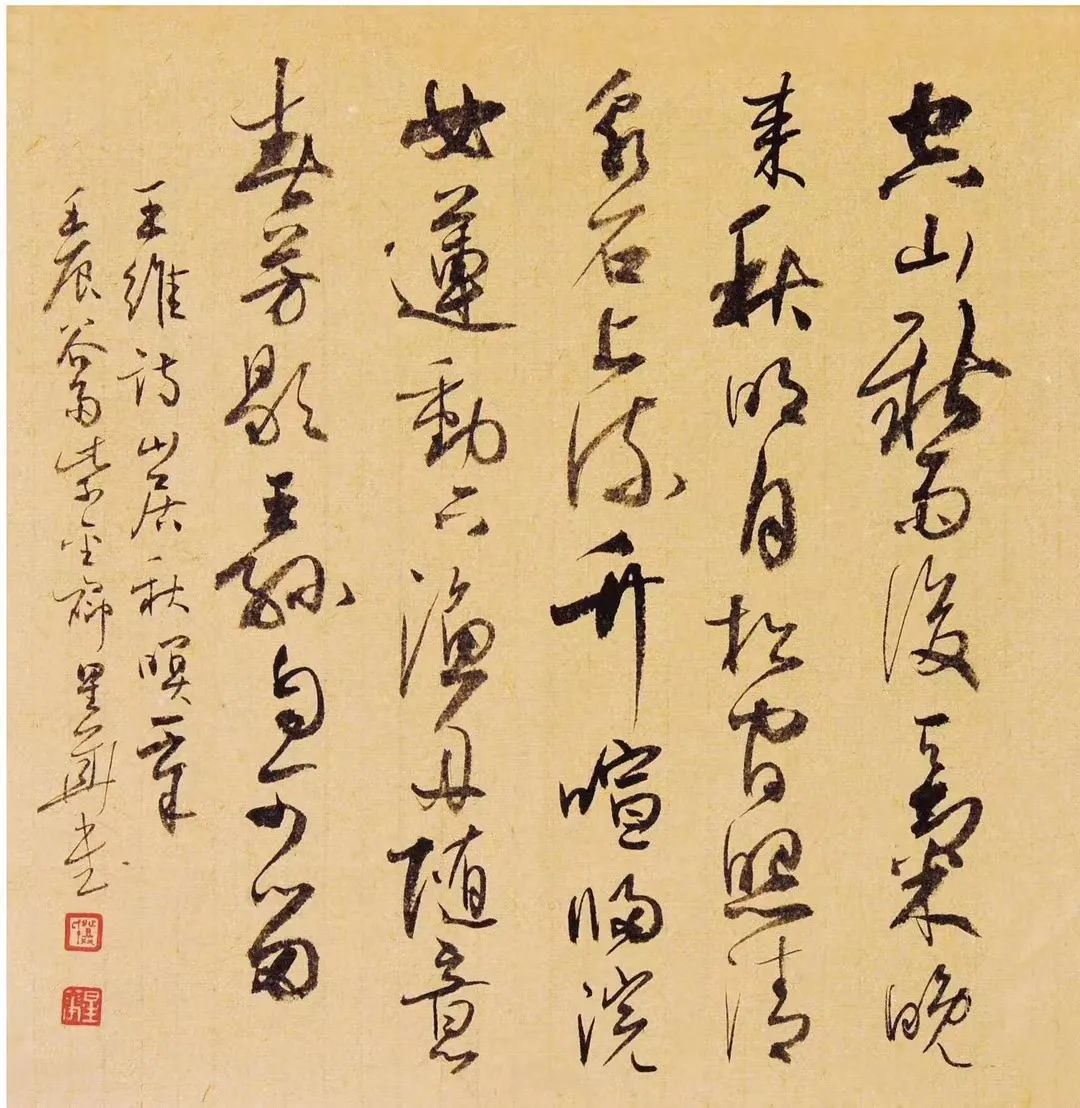 空山新雨後天氣晚
來秋明月松間照清
泉石上流竹喧歸浣
女蓮動下漁舟隨意
春芳歇王孫自可留
王維詩山居秋暝一章
壬辰谷雨紫金星書